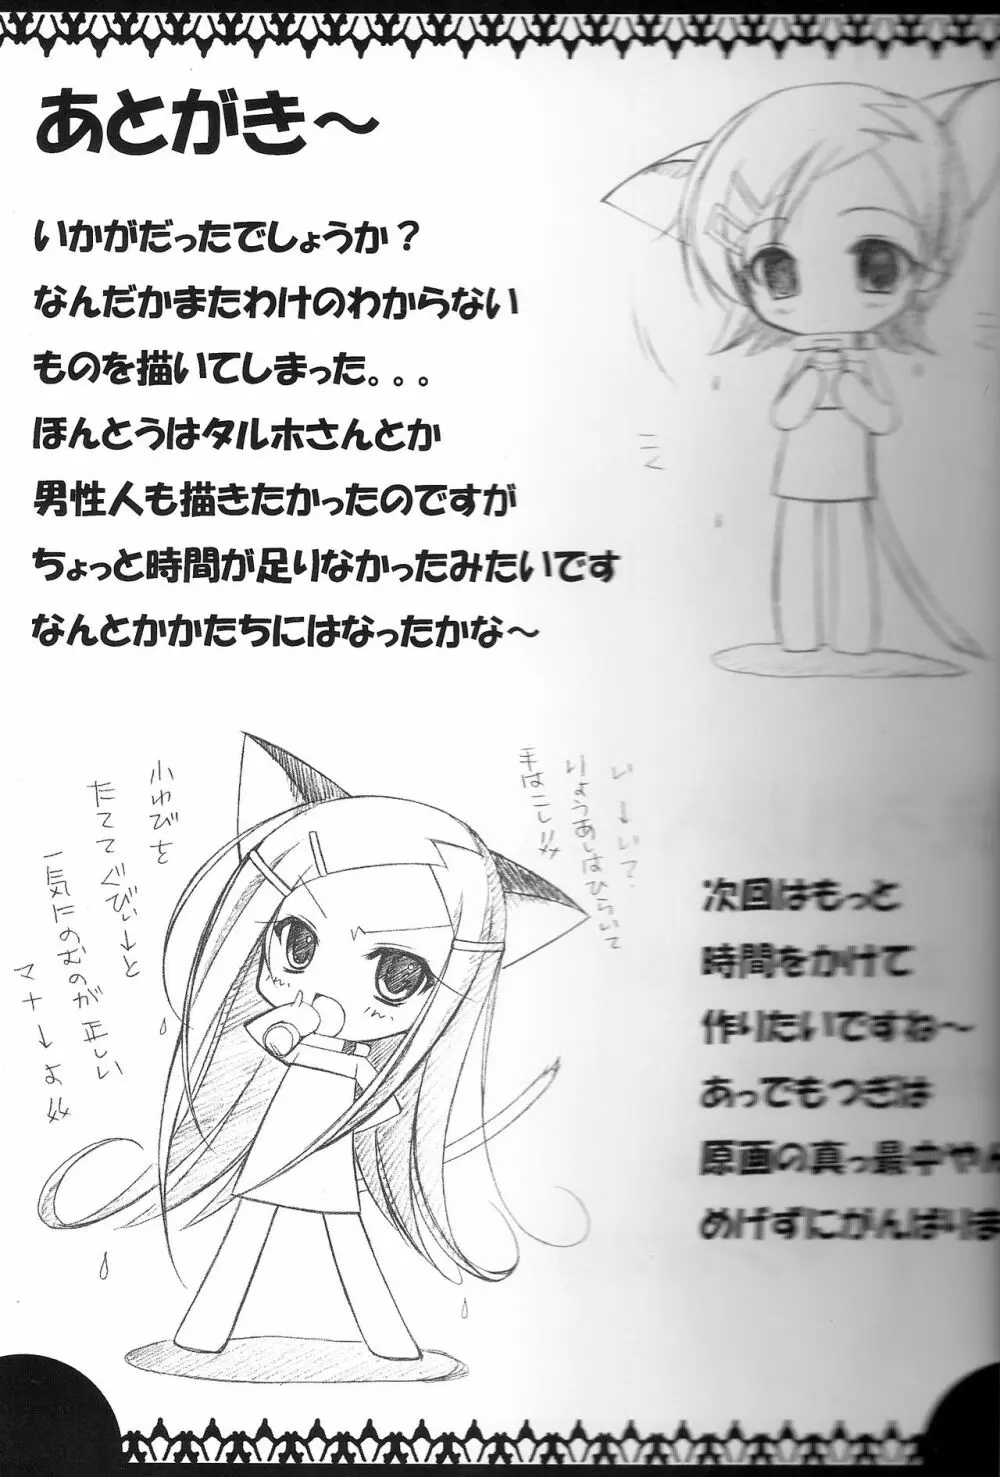 あとがき～
いかがだったでしょうか？
なんだかまたわけのわからない
ものを描いてしまった。。。
ほんとうはタルホさんとか
男性人も描きたかったのですが
ちょっと時間が足りなかったみたいです
なんとかかたちにはなったかな～
い→い？
りょうあしはひらいて
手はこし!!
小わびを
たててぐびぃ→→と
一気にのむのが正しい
マナ→よ
こく
次回はもっと
時間をかけて
作りたいですね～
あってもつぎは
原画の真っ最中やん
めげずにがんばりま